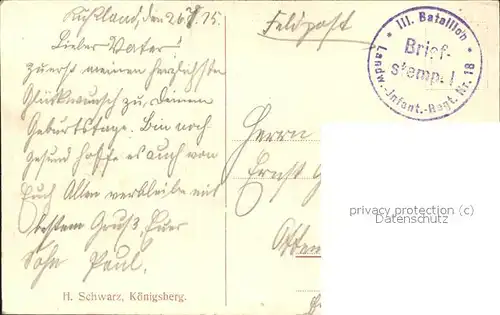 Rußland, den 26.7.15.
Lieber Vater!
zuerst meinen herzlichsten
Glückwunsch zu Deinem
Geburtstage. Bin noch
gesund hoffe es auch von
Euch Allen verbleibe mit
bestem Gruß, Euer
Sohn Paul.
H. Schwarz, Königsberg.
Feldpost
III. Bataillon
Brief-
stempel
Landw.-Infant.-Regt. Nr. 18
Herrn
Ernst
privacy protection (c)
Datenschutz